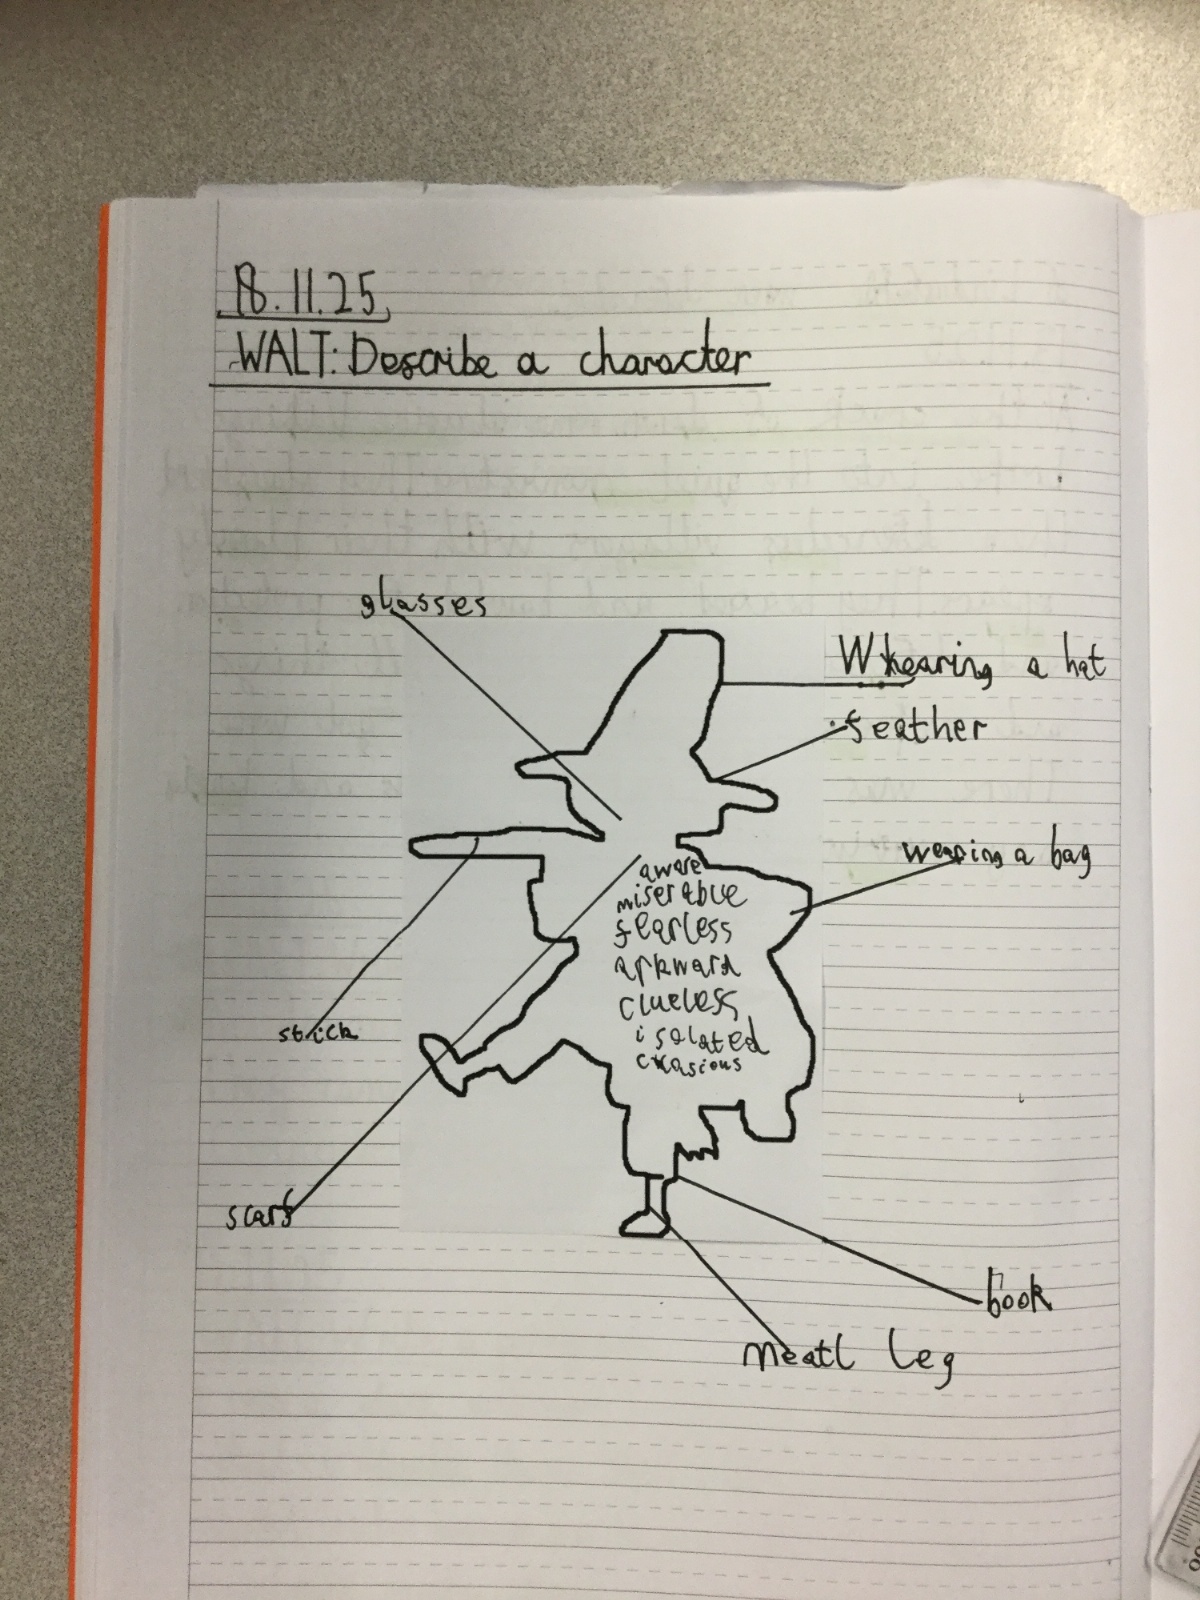 18.11.25
WALT: Describe a character
glasses
Whearing a hat
feather
wearing a bag
aware
miserable
fearless
apkward
clueless
isolated
stick
scarf
book
Meatl leg